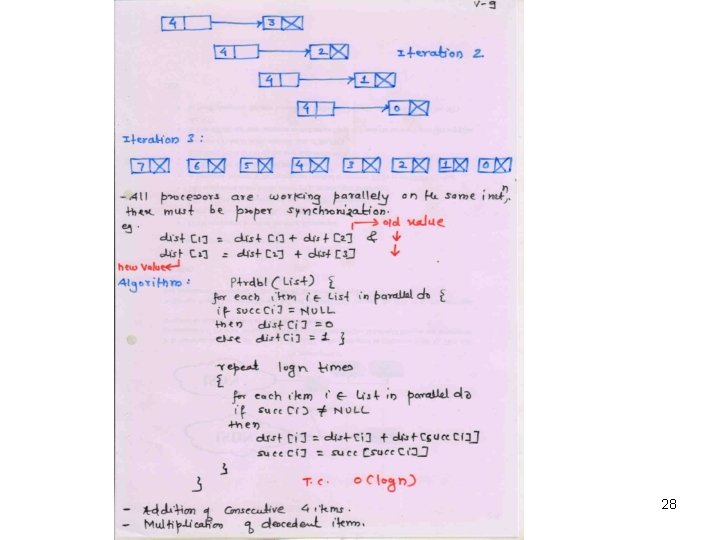 V-9
4 3
4 2 Iteration 2
4 1
4 0
Iteration 3 :
7 6 5 4 3 2 1 0
- All processors are working parallely on the same instn,
there must be proper synchronization.
eg. → old value
dist [1] = dist [1] + dist [2] & ↓
dist [2] = dist [2] + dist [3] ↓
new value
Algorithm : Ptrdbl (List) {
for each item i ∈ List in parallel do {
if succ[i] = NULL
then dist [i] = 0
else dist [i] = 1 }
repeat logn times
{
for each item i ∈ List in parallel do
if succ [i] ≠ NULL
then
dist [i] = dist [i] + dist [succ [i]]
succ [i] = succ [succ [i]]
}
} T.C. O (logn)
- Addition of consecutive 4 items.
- Multiplication of decedent items.
28